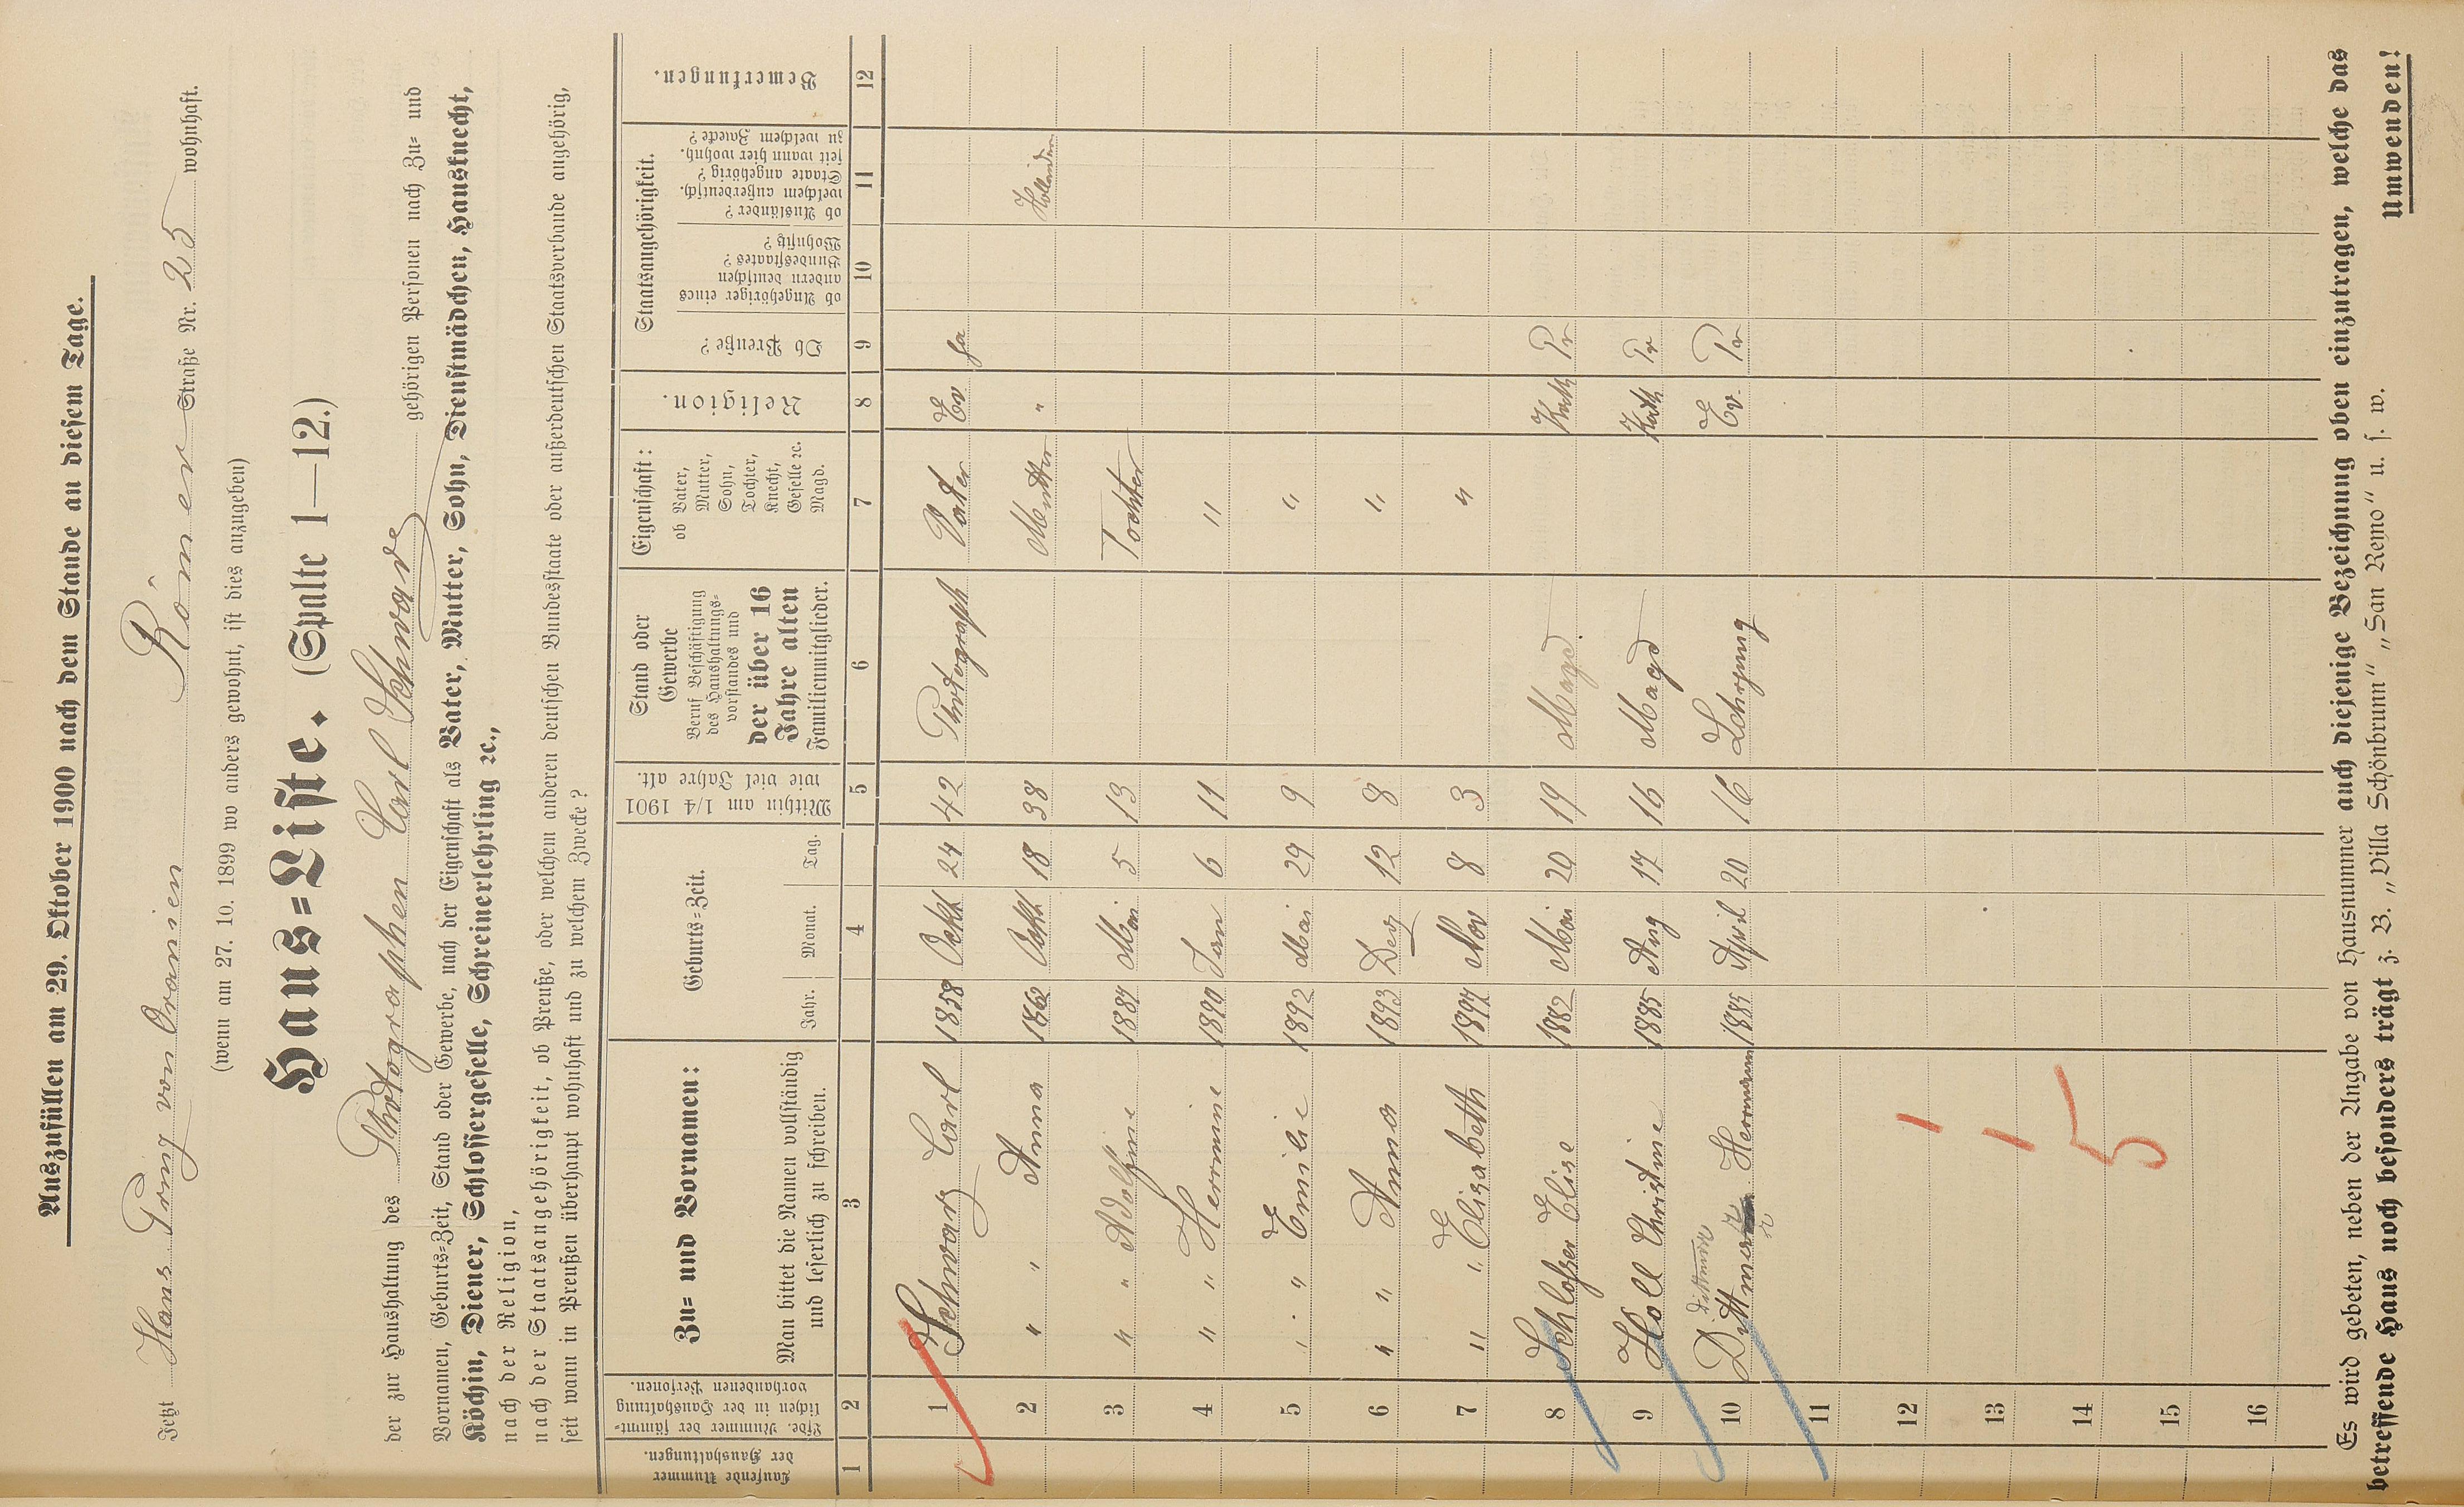 Auszufüllen am 29. Oktober 1900 nach dem Stande an diesem Tage.
Jetzt Haus Prinz von Oranien Römer Straße Nr. 25 wohnhaft.
(wenn am 27. 10. 1899 wo anders gewohnt, ist dies anzugeben)
Haus=Liste. (Spalte 1—12.)
der zur Haushaltung des Photographen Carl Schwarz gehörigen Personen nach Zu= und
Vornamen, Geburts=Zeit, Stand oder Gewerbe, nach der Eigenschaft als Vater, Mutter, Sohn, Dienstmädchen, Hausknecht,
Köchin, Diener, Schlossergeselle, Schreinerlehrling ꝛc.,
nach der Religion,
nach der Staatsangehörigkeit, ob Preuße, oder welchem anderen deutschen Bundesstaate oder außerdeutschen Staatsverbande angehörig,
seit wann in Preußen überhaupt wohnhaft und zu welchem Zwecke?
Laufende Nummer der Haushaltungen.
Lfde. Nummer der sämmt=lichen in der Haushaltung vorhandenen Personen.
Zu= und Vornamen:
Man bittet die Namen vollständig und leserlich zu schreiben.
Geburts=Zeit.
Jahr. Monat. Tag.
Mithin am 1/4 1901 wie viel Jahre alt.
Stand oder Gewerbe
Beruf Beschäftigung des Haushaltungs=vorstandes und
der über 16 Jahre alten Familienmitglieder.
Eigenschaft:
ob Vater, Mutter, Sohn, Tochter, Knecht, Geselle ꝛc. Magd.
Religion.
Staatsangehörigkeit.
Ob Preuße?
ob Angehöriger eines andern deutschen Bundesstaates Wohnsitz?
ob Ausländer? welchem außerdeutsch. Staate angehörig? seit wann hier wohnh. zu welchem Zwecke?
Bemerkungen.
1 2 3 4 5 6 7 8 9 10 11 12
1 Schwarz Carl 1858 Octbr 24 42 Photograph Vater Ev Ja
2 " " Anna 1862 Octbr 18 38 Mutter " Holländer
3 " " Adolfine 1887 Mai 5 13 Tochter
4 " " Hermine 1890 Jan 6 11 "
5 " " Emilie 1892 Mai 29 9 "
6 " " Anna 1893 Dez 12 8 "
7 " " Elisabeth 1897 Nov 8 3 "
8 Schlosser Elise 1882 Mai 20 19 Magd. Kath Pr
9 Holl Christine 1885 Aug 17 16 Magd Kath Pr
10 Hermann 1885 April 20 16 Lehrjung Ev. Pr
11
12
13
14
15
16
1
1
5
Es wird gebeten, neben der Angabe von Hausnummer auch diejenige Bezeichnung oben einzutragen, welche das
betreffende Haus noch besonders trägt z. B. „Villa Schönbrunn" „San Remo" u. s. w.
Umwenden!